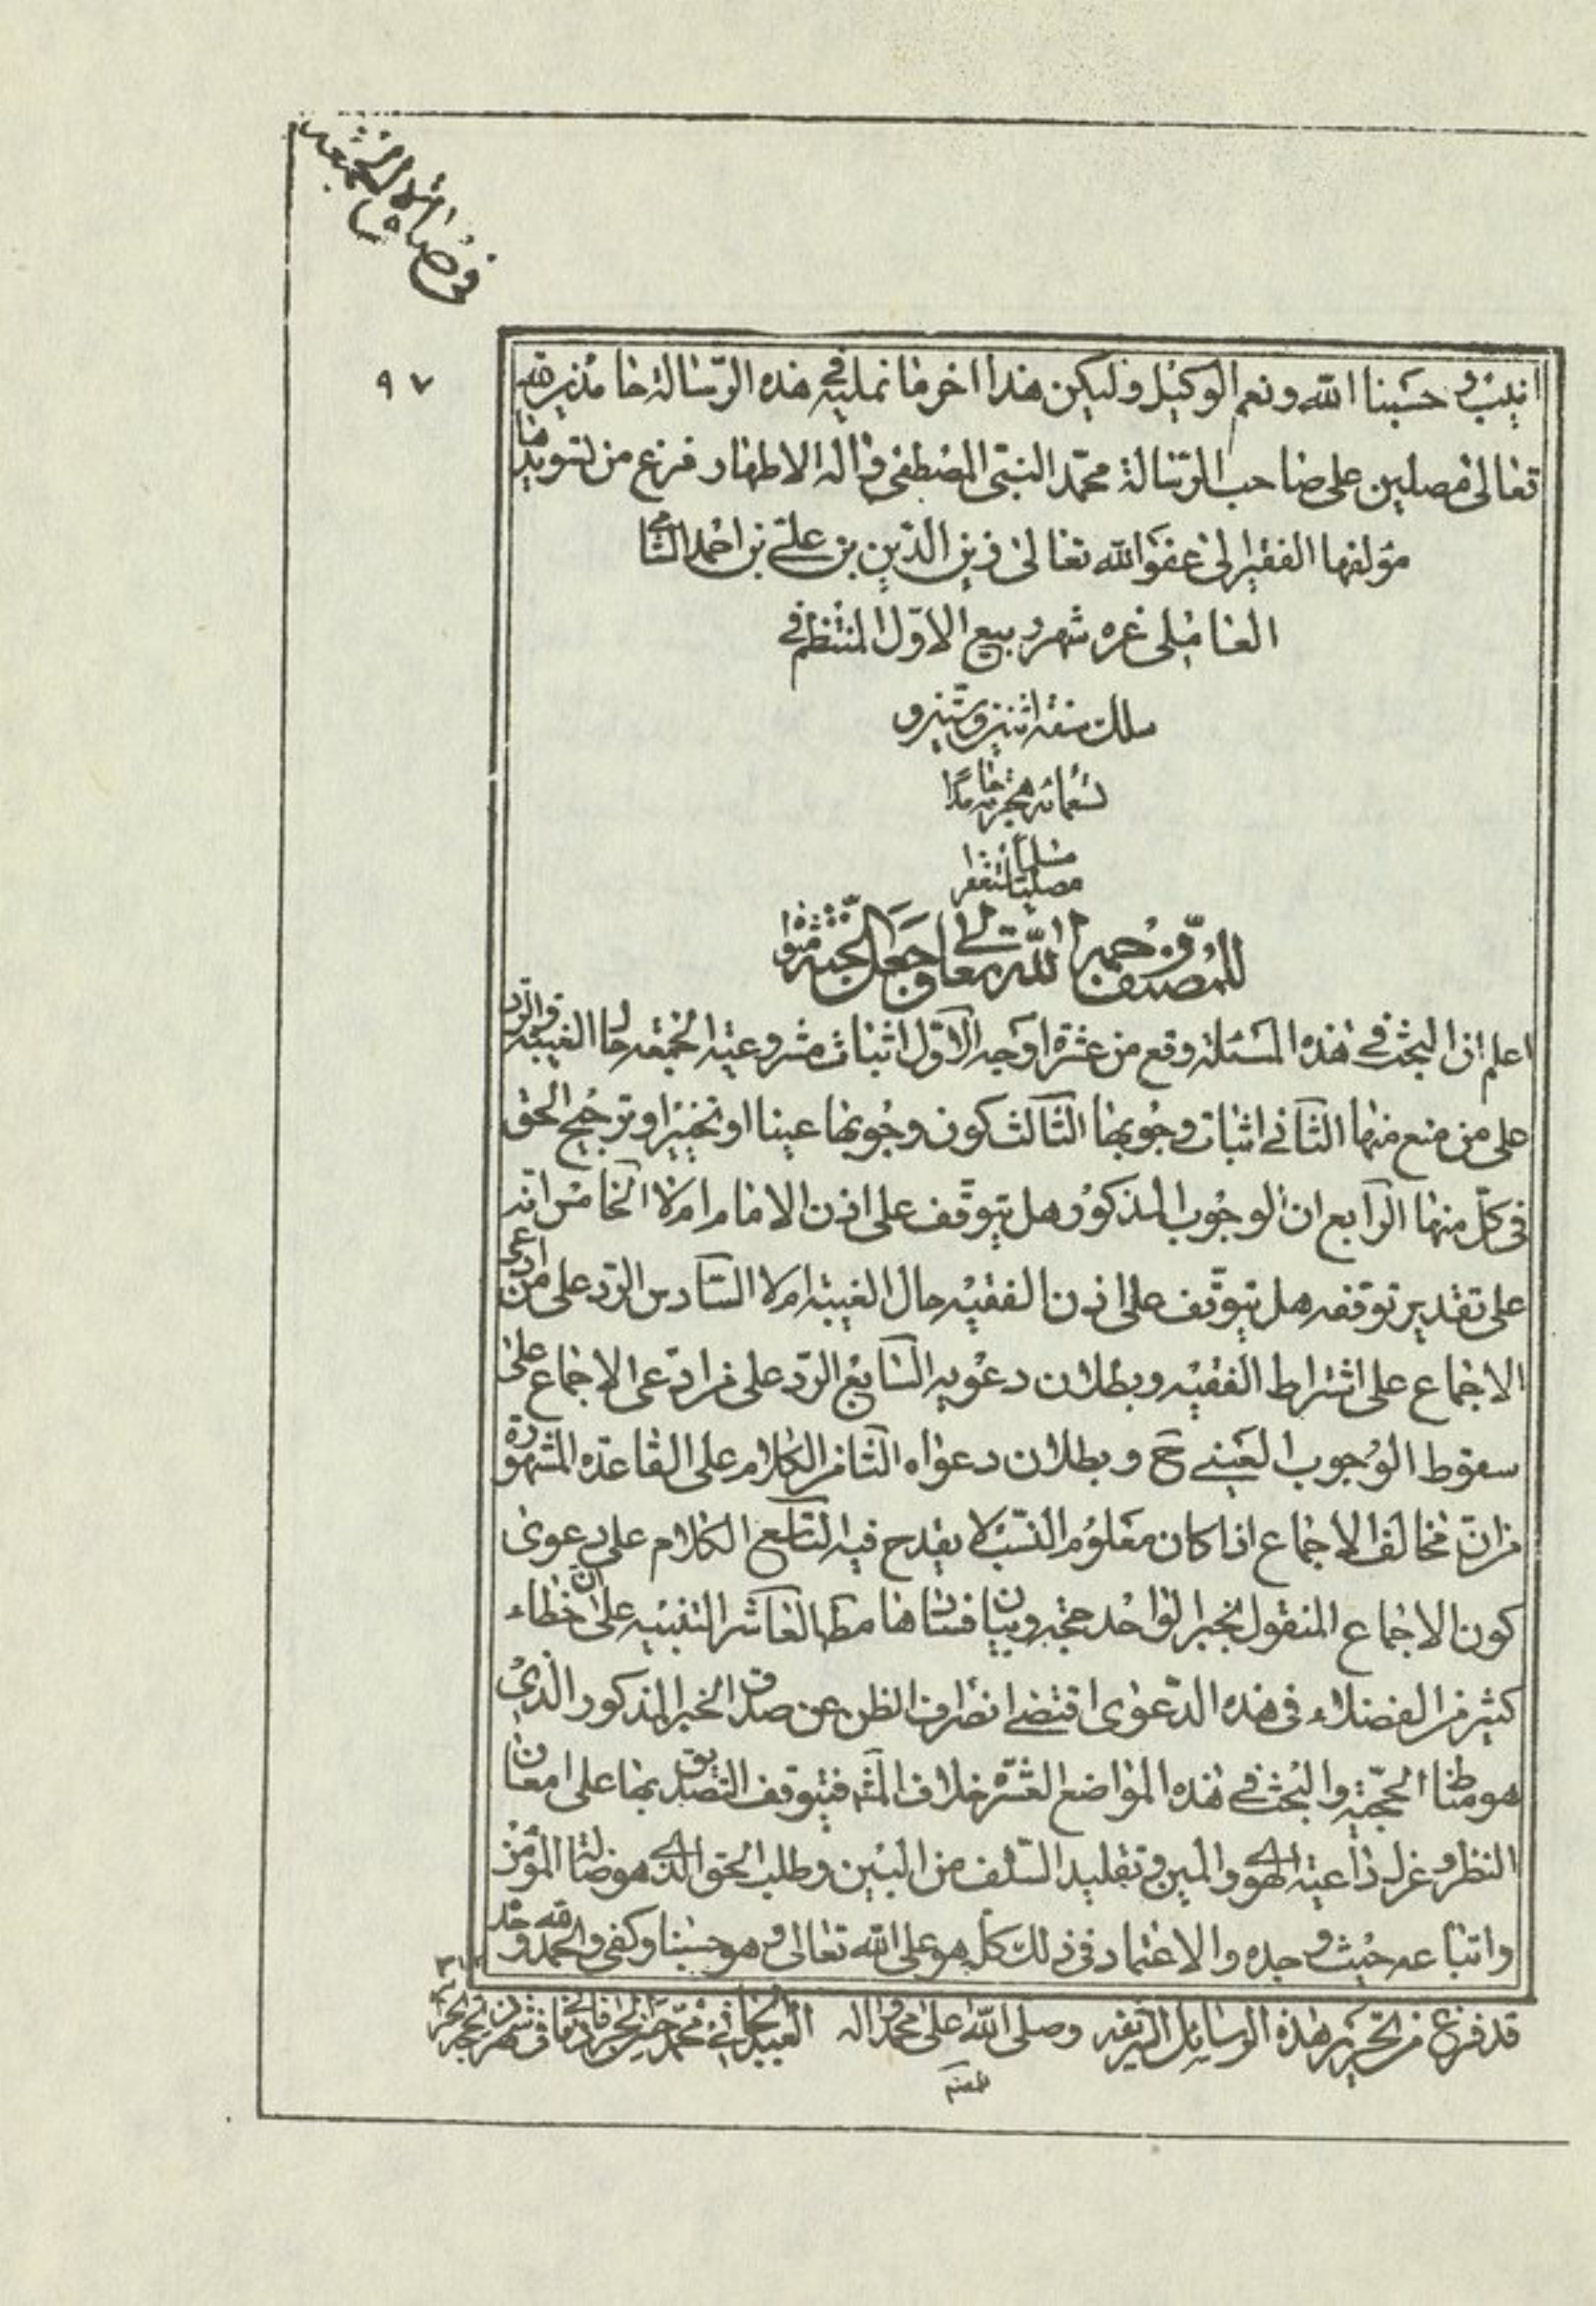 في صلاة الجمعة
٩٧
انيب وحسبنا الله ونعم الوكيل وليكن هذا اخر ما نمليه في هذه الرسالة حامدين لله
تعالى مصلين على صاحب الرسالة محمد النبي المصطفى واله الاطهار فرغ من تسويدها
مؤلفها الفقير الى عفو الله تعالى زين الدين بن علي بن احمد الشامي
العاملي غره شهر ربيع الاول المنتظم في
سلك سنة اثنين وستين و
تسعمائة هجرية حامدا
مصليا مسلما مستغفرا
للمصنف رحمه الله تعالى وجعل الجنة مثواه
اعلم ان البحث في هذه المسئلة وقع من عشرة اوجه الاول اثبات مشروعية الجمعة حال الغيبة والرد
على من منع منها الثاني اثبات وجوبها الثالث كون وجوبها عينا او تخييرا وترجيح الحق
في كل منهما الرابع ان الوجوب المذكور هل يتوقف على اذن الامام ام لا الخامس انه
على تقدير توقفه هل يتوقف على اذن الفقيه حال الغيبة ام لا السادس الرد على من ادعى
الاجماع على اشتراط الفقيه وبطلان دعويه السابع الرد على من ادعى الاجماع على
سقوط الوجوب العيني ح وبطلان دعواه الثامن الكلام على القاعده المشهورة
من ان مخالف الاجماع اذا كان معلوم النسب لا يقدح فيه التاسع الكلام على دعوى
كون الاجماع المنقول بخبر الواحد حجة وبيان فسادها مط العاشر التنبيه على ان خطاء
كثير من الفضلاء في هذه الدعوى اقتضى انصراف الظن عن صدق الخبر المذكور الذي
هو مظنا الحجية والبحث في هذه المواضع العشره خلاف المشه فيتوقف التصديق بها على امعان
النظر وعزل داعية الهوى والمين وتقليد السلف من البين وطلب الحق الذي هو ضالة المؤمن
واتباعه حيث وجده والاعتماد في ذلك كله هو على الله تعالى وهو حسبنا وكفى والحمد لله وحده
قد فرغ من تحرير هذة الرسايل الشريفه وصلى الله على محمد واله العبد الجاني محمد حسن